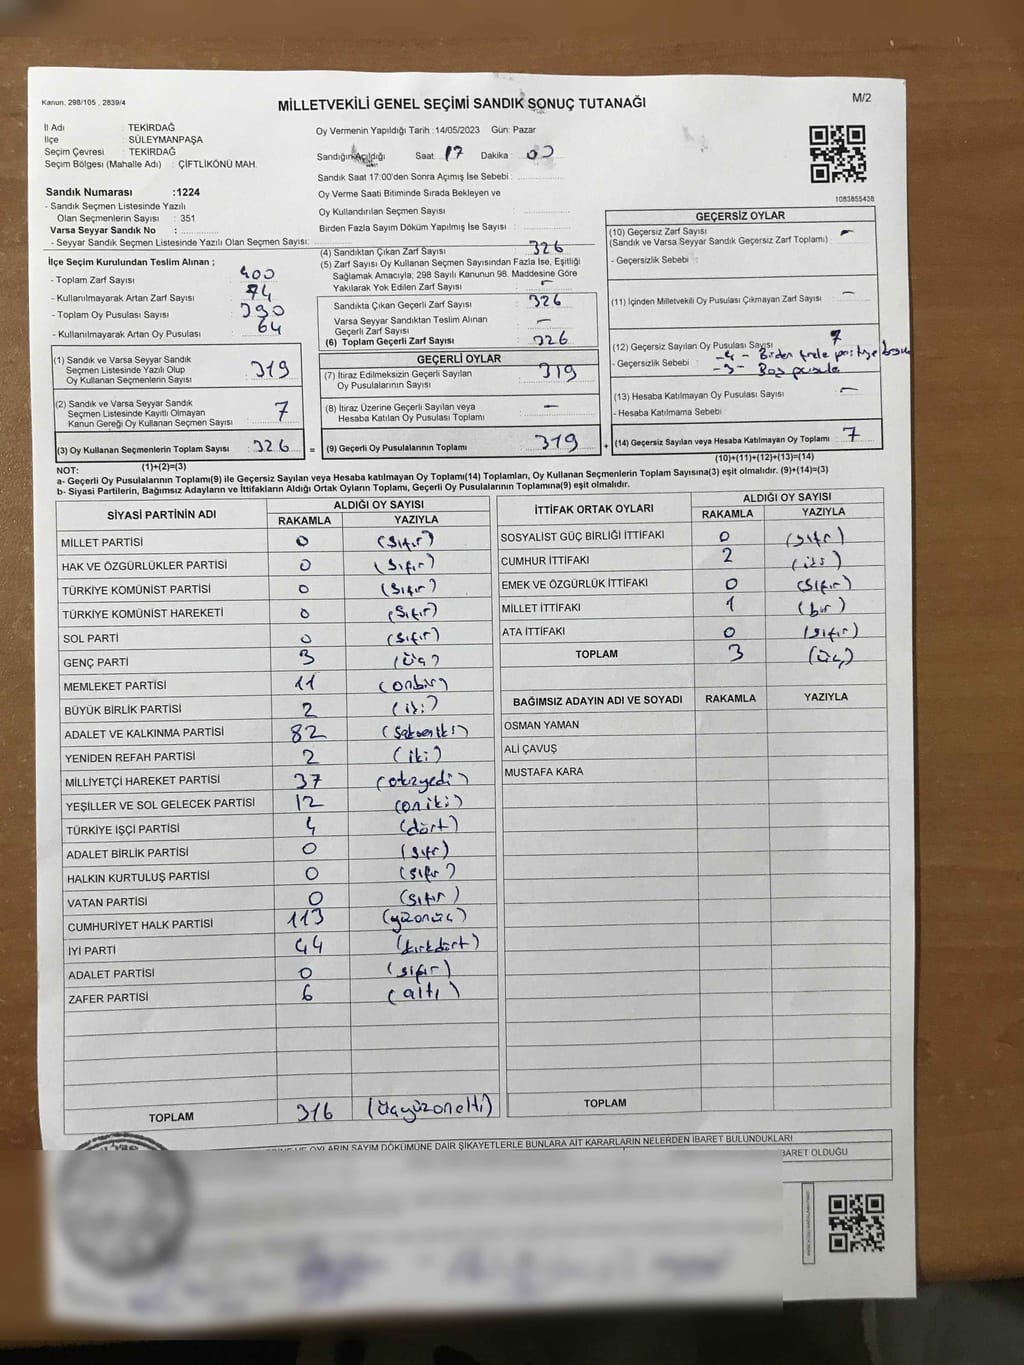 Kanun, 298/105 , 2839/4
MİLLETVEKİLİ GENEL SEÇİMİ SANDIK SONUÇ TUTANAĞI
M/2
İl Adı : TEKİRDAĞ
İlçe : SÜLEYMANPAŞA
Seçim Çevresi : TEKİRDAĞ
Seçim Bölgesi (Mahalle Adı) : ÇİFTLİKÖNÜ MAH.
Sandık Numarası :1224
- Sandık Seçmen Listesinde Yazılı
Olan Seçmenlerin Sayısı : 351
Varsa Seyyar Sandık No :
- Seyyar Sandık Seçmen Listesinde Yazılı Olan Seçmen Sayısı:
Oy Vermenin Yapıldığı Tarih :14/05/2023 Gün: Pazar
Sandığın Açıldığı Saat 17 Dakika 00
Sandık Saat 17:00'den Sonra Açılmış İse Sebebi :
Oy Verme Saati Bitiminde Sırada Bekleyen ve
Oy Kullandırılan Seçmen Sayısı :
Birden Fazla Sayım Döküm Yapılmış İse Sayısı :
1083855438
İlçe Seçim Kurulundan Teslim Alınan ;
- Toplam Zarf Sayısı : 400
- Kullanılmayarak Artan Zarf Sayısı : 74
- Toplam Oy Pusulası Sayısı : 390
- Kullanılmayarak Artan Oy Pusulası : 64
(1) Sandık ve Varsa Seyyar Sandık
Seçmen Listesinde Yazılı Olup
Oy Kullanan Seçmenlerin Sayısı : 319
(2) Sandık ve Varsa Seyyar Sandık
Seçmen Listesinde Kayıtlı Olmayan
Kanun Gereği Oy Kullanan Seçmen Sayısı : 7
(3) Oy Kullanan Seçmenlerin Toplam Sayısı : 326 =
(1)+(2)=(3)
(4) Sandıktan Çıkan Zarf Sayısı : 326
(5) Zarf Sayısı Oy Kullanan Seçmen Sayısından Fazla İse, Eşitliği
Sağlamak Amacıyla; 298 Sayılı Kanunun 98. Maddesine Göre
Yakılarak Yok Edilen Zarf Sayısı : -
Sandıkta Çıkan Geçerli Zarf Sayısı : 326
Varsa Seyyar Sandıktan Teslim Alınan
Geçerli Zarf Sayısı : -
(6) Toplam Geçerli Zarf Sayısı : 326
GEÇERLİ OYLAR
(7) İtiraz Edilmeksizin Geçerli Sayılan
Oy Pusulalarının Sayısı : 319
(8) İtiraz Üzerine Geçerli Sayılan veya
Hesaba Katılan Oy Pusulası Toplamı : -
(9) Geçerli Oy Pusulalarının Toplamı : 319 +
GEÇERSİZ OYLAR
(10) Geçersiz Zarf Sayısı
(Sandık ve Varsa Seyyar Sandık Geçersiz Zarf Toplamı) : -
- Geçersizlik Sebebi :
(11) İçinden Milletvekili Oy Pusulası Çıkmayan Zarf Sayısı : -
(12) Geçersiz Sayılan Oy Pusulası Sayısı : 7
- Geçersizlik Sebebi : -4- Birden
-3- Boş pusula
(13) Hesaba Katılmayan Oy Pusulası Sayısı : -
- Hesaba Katılmama Sebebi :
(14) Geçersiz Sayılan veya Hesaba Katılmayan Oy Toplamı : 7
(10)+(11)+(12)+(13)=(14)
NOT:
a- Geçerli Oy Pusulalarının Toplamı(9) ile Geçersiz Sayılan veya Hesaba katılmayan Oy Toplamı(14) Toplamları, Oy Kullanan Seçmenlerin Toplam Sayısına(3) eşit olmalıdır. (9)+(14)=(3)
b- Siyasi Partilerin, Bağımsız Adayların ve İttifakların Aldığı Ortak Oyların Toplamı, Geçerli Oy Pusulalarının Toplamına(9) eşit olmalıdır.
SİYASİ PARTİNİN ADI ALDIĞI OY SAYISI
RAKAMLA YAZIYLA
MİLLET PARTİSİ 0 (sıfır)
HAK VE ÖZGÜRLÜKLER PARTİSİ 0 (sıfır)
TÜRKİYE KOMÜNİST PARTİSİ 0 (sıfır)
TÜRKİYE KOMÜNİST HAREKETİ 0 (sıfır)
SOL PARTİ 0 (sıfır)
GENÇ PARTİ 3 (üç)
MEMLEKET PARTİSİ 11 (onbir)
BÜYÜK BİRLİK PARTİSİ 2 (iki)
ADALET VE KALKINMA PARTİSİ 82 (sekseniki)
YENİDEN REFAH PARTİSİ 2 (iki)
MİLLİYETÇİ HAREKET PARTİSİ 37 (otuzyedi)
YEŞİLLER VE SOL GELECEK PARTİSİ 12 (oniki)
TÜRKİYE İŞÇİ PARTİSİ 4 (dört)
ADALET BİRLİK PARTİSİ 0 (sıfır)
HALKIN KURTULUŞ PARTİSİ 0 (sıfır)
VATAN PARTİSİ 0 (sıfır)
CUMHURİYET HALK PARTİSİ 113 (yüzonüç)
İYİ PARTİ 44 (kırkdört)
ADALET PARTİSİ 0 (sıfır)
ZAFER PARTİSİ 6 (altı)
TOPLAM 316 (üçyüzonaltı)
İTTİFAK ORTAK OYLARI ALDIĞI OY SAYISI
RAKAMLA YAZIYLA
SOSYALİST GÜÇ BİRLİĞİ İTTİFAKI 0 (sıfır)
CUMHUR İTTİFAKI 2 (iki)
EMEK VE ÖZGÜRLÜK İTTİFAKI 0 (sıfır)
MİLLET İTTİFAKI 1 (bir)
ATA İTTİFAKI 0 (sıfır)
TOPLAM 3 (üç)
BAĞIMSIZ ADAYIN ADI VE SOYADI RAKAMLA YAZIYLA
OSMAN YAMAN
ALİ ÇAVUŞ
MUSTAFA KARA
TOPLAM
OYLARIN SAYIM DÖKÜMÜNE DAİR ŞİKAYETLERLE BUNLARA AİT KARARLARIN NELERDEN İBARET BULUNDUKLARI
OLDUĞU